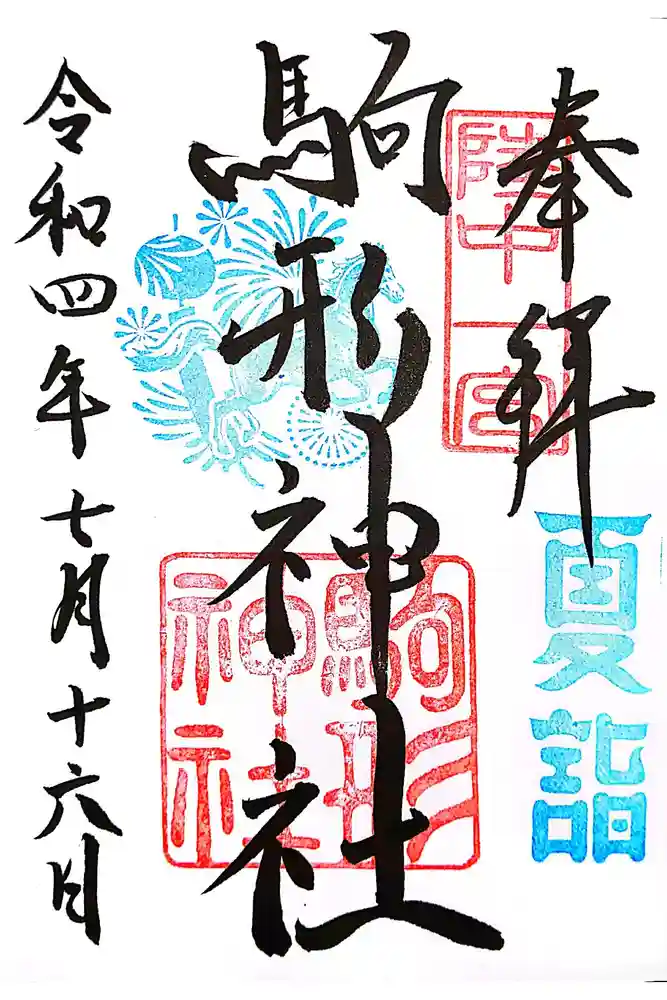 奉拝
陸中一宮
夏詣
駒形神社
駒形神社
令和四年七月十六日